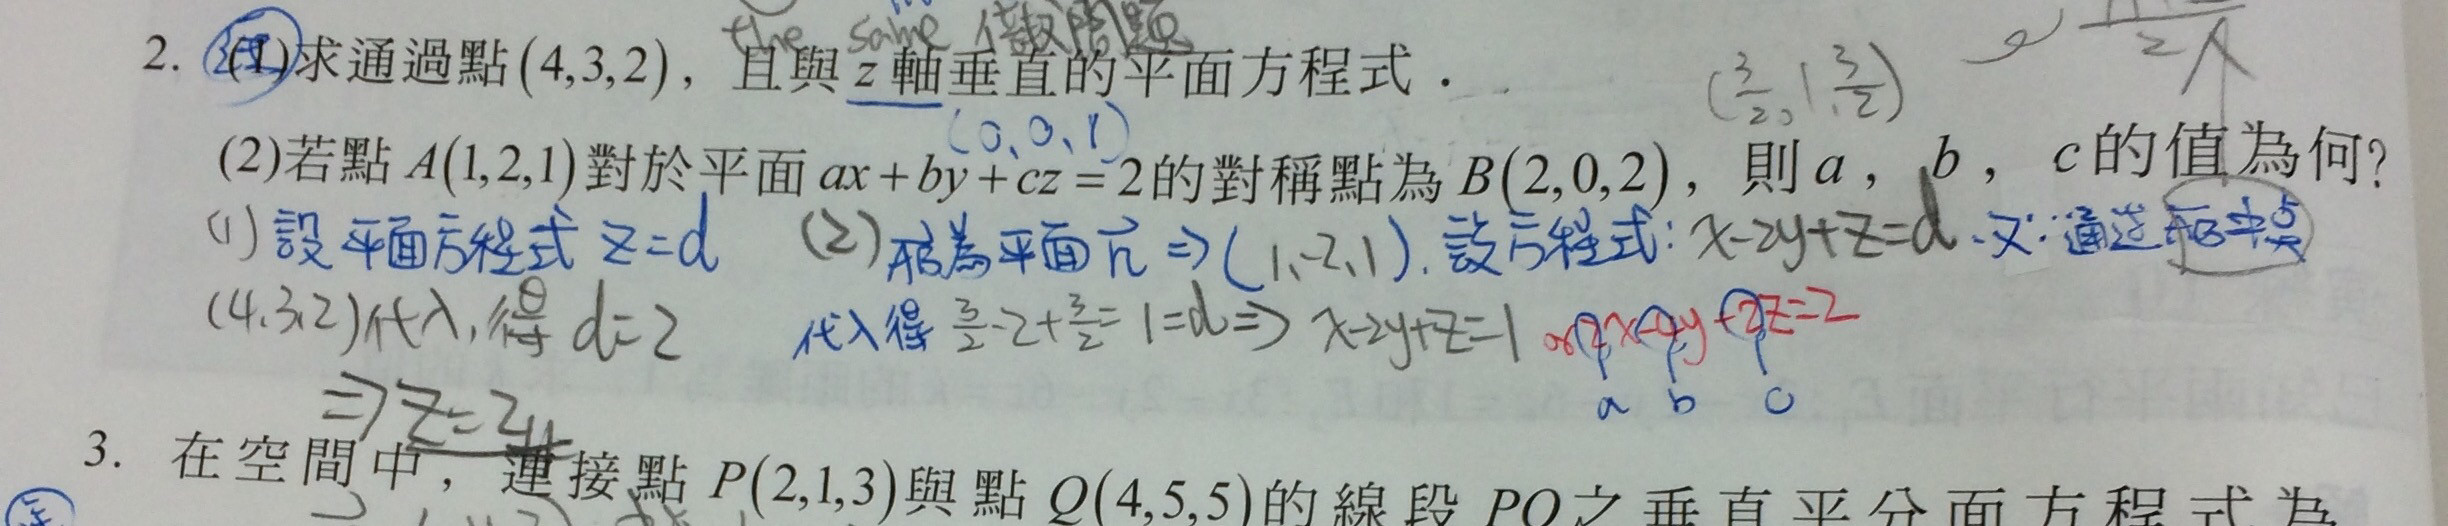 the same 係數問題
2. (1)求通過點(4,3,2)，且與z軸垂直的平面方程式．
(0、0、1)
(3/2, 1, 3/2)
(2)若點A(1,2,1)對於平面ax+by+cz=2的對稱點為B(2,0,2)，則a，b，c的值為何?
(1)設平面方程式 z=d
(4、3、2)代入,得 d=2
⇒z=2
(2) AB為平面n⇒(1、-2、1). 設方程式: x-2y+z=d、又∵通過AB中點
代入得 3/2-2+3/2=1=d⇒ x-2y+z=1 or 2x-4y+2z=2
a b c
3. 在空間中，連接點P(2,1,3)與點Q(4,5,5)的線段PQ之垂直平分面方程式為